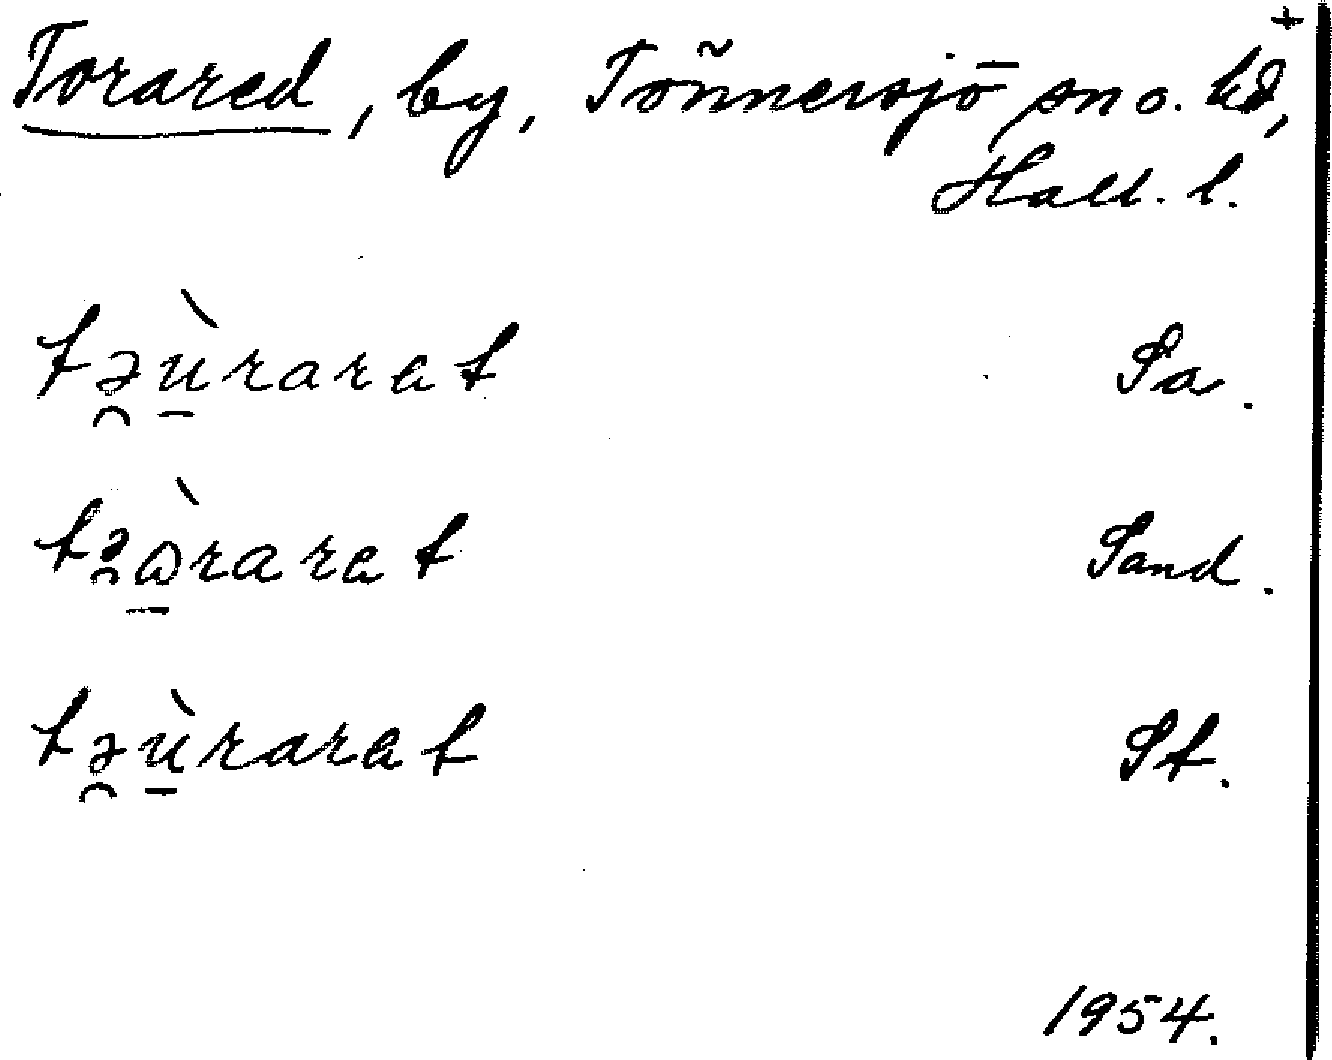 Torared, by, Tönnersjö sn o. hd, +
Hall. l.
tə̯ù̱rarat Sa.
tə̯ὼ̱rarat Sand.
tə̯ù̱rarat St.
1954.